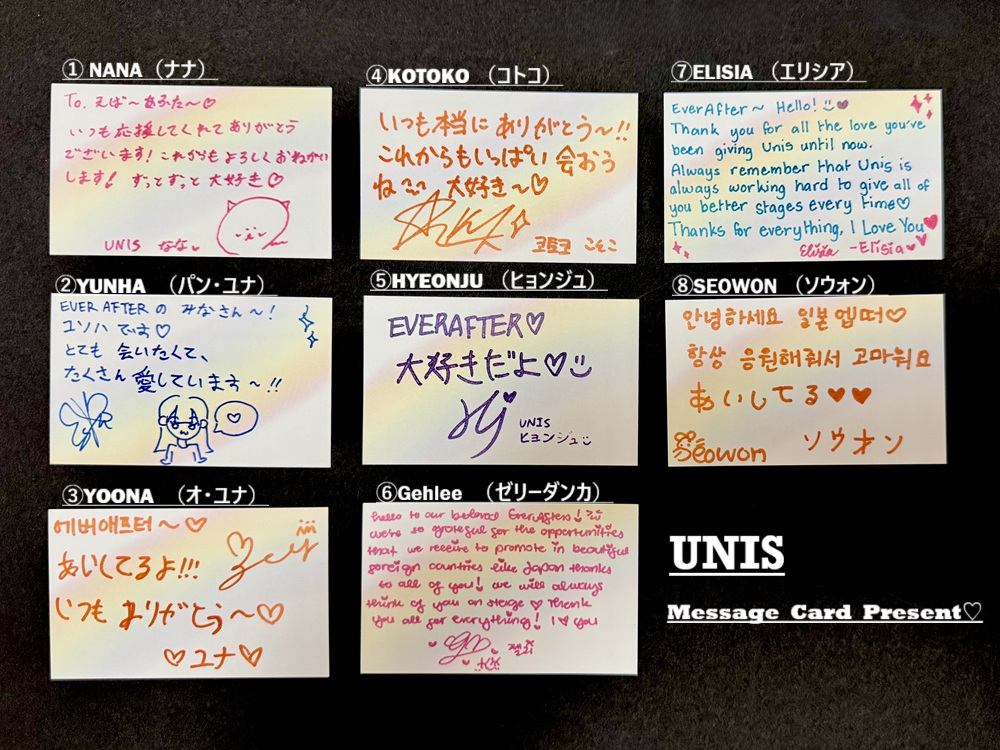 ①NANA （ナナ）
To. えば〜あふた〜♡
いつも応援してくれてありがとう
ございます! これからもよろしくおねがい
します! ずっとずっと大好き♡
UNIS なな
②YUNHA （パン・ユナ）
EVER AFTERの みなさん〜!
ユソハです♡
とても 会いたくて、
たくさん 愛しています〜!!
③YOONA （オ・ユナ）
에버애프터〜♡
あいしてるよ!!!
いつも ありがとう〜♡
♡ユナ♡
④KOTOKO （コトコ）
いつも本当に ありがとう〜!!
これからもいっぱい 会おう
ね 大好き〜♡
코토코 ことこ
⑤HYEONJU （ヒョンジュ）
EVERAFTER♡
大好きだよ♡
Hj
UNIS
ヒョンジュ
⑥Gehlee （ゼリーダンカ）
hello to our beloved EverAfters!
we're so grateful for the opportunities
that we receive to promote in beautiful
foreign countries like Japan thanks
to all of you! we will always
think of you on stage ♡ Thank
you all for everything! I ♡ you
젤리
⑦ELISIA （エリシア）
EverAfter~ Hello!
Thank you for all the love you've
been giving Unis until now.
Always remember that Unis is
always working hard to give all of
you better stages every time♡
Thanks for everything, I Love You
Elisia -Elisia
⑧SEOWON （ソウォン）
안녕하세요 일본 엡떠♡
항상 응원해줘서 고마워요
あいしてる♥♥
Seowon ソウォン
UNIS
Message Card Present♡